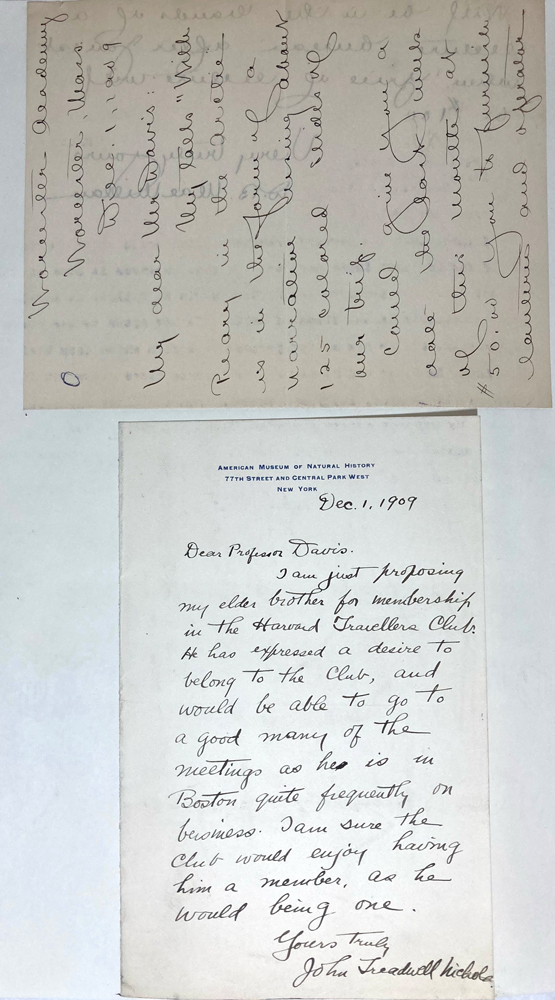 Worcester Academy
Worcester, Mass.
Dec. 1, 1909
My dear Mr Davis:
My talk "With
Peary in the Arctic"
is in the form of a
narrative running about
125 colored slides of
our trip.
Could give you a
date the last week
of this month at
$50.00 you to furnish
lantern and operator.
American Museum of Natural History
77th Street and Central Park West
New York
Dec. 1, 1909
Dear Professor Davis.
I am just proposing
my elder brother for membership
in the Harvard Travellers Club.
He has expressed a desire to
belong to the Club, and
would be able to go to
a good many of the
meetings as he is in
Boston quite frequently on
business. I am sure the
Club would enjoy having
him a member, as he
would being one.
Yours truly
John Treadwell Nichols